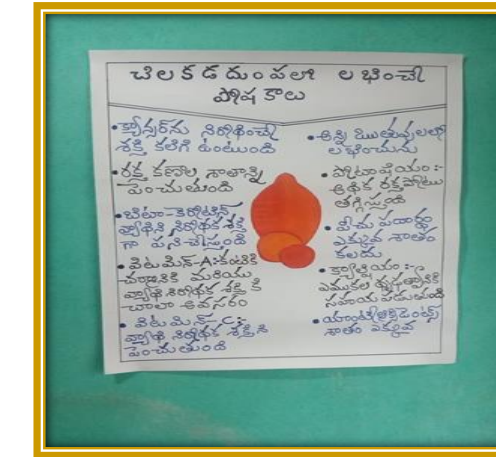 చిలకడదుంపలో లభించే
పోషకాలు
• క్యాన్సర్‌ను నిరోధించే
శక్తి కలిగి ఉంటుంది
• రక్త కణాల శాతాన్ని
పెంచుతుంది
• బీటా-కెరోటిన్
వ్యాధి నిరోధక శక్తి
గా పనిచేస్తుంది
• విటమిన్-A:- కంటికి
చర్మానికి మరియు
వ్యాధి నిరోధక శక్తి కి
చాలా అవసరం
• విటమిన్-C:-
వ్యాధి నిరోధక శక్తిని
పెంచుతుంది
• అన్ని ఋతువులలో
లభించును
• పోటాషియం:-
అధిక రక్తపోటు
తగ్గిస్తుంది
• పీచు పదార్థం
ఎక్కువ శాతం
కలదు
• క్యాల్షియం:-
ఎముకల దృఢత్వానికి
సహాయ పడుతుంది
• యాంటీఆక్సిడెంట్స్
శాతం ఎక్కువ